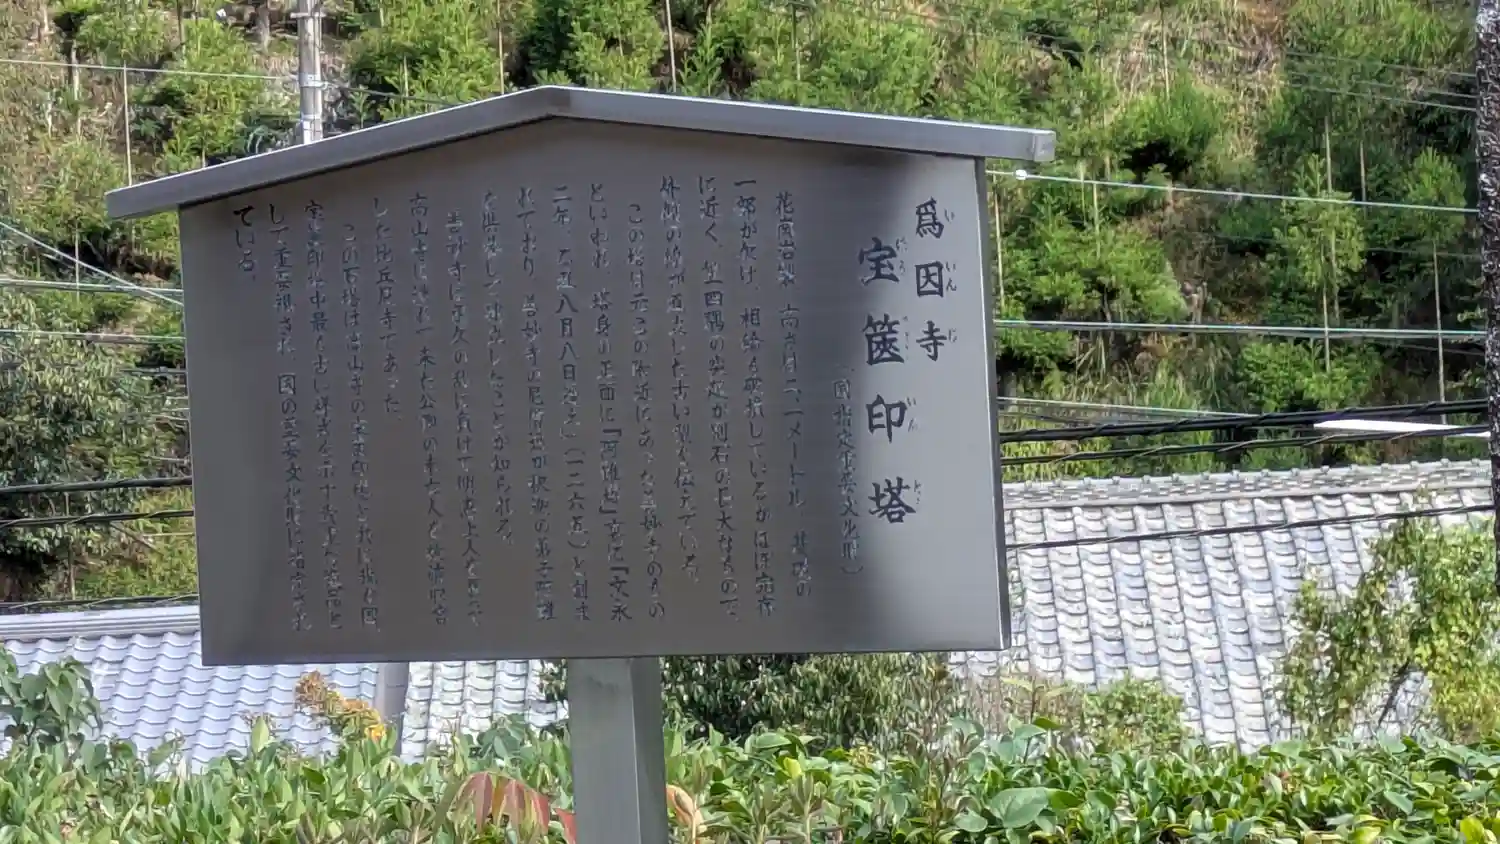 爲因寺
いいんじ
宝篋印塔
ほうきょういんとう
（国指定重要文化財）
花崗岩製 高さは二、一メートル 基礎の
一部が欠け、相輪も破損しているがほぼ完存
に近く、笠四隅の突起が別石の巨大なもので、
外側の線が直立した古い型を伝えている。
この塔は元この附近にあった善妙寺のもの
といわれ、塔身の正面に「阿難塔」京に「文永
二年 乙丑 八月八日 （一二六五）と刻ま
れており、善妙寺の尼僧達が釈迦の弟子阿難
を供養して建立したことが知られる。
善妙寺は承久の乱に負けて明恵上人を
高山寺に 来た公卿の
した比丘尼寺であった
この石塔は高山寺の宝篋印塔と共に我が国
宝篋印塔中最も古い様式を示す
して重要視され、国の重要文化財に指定され
ている。